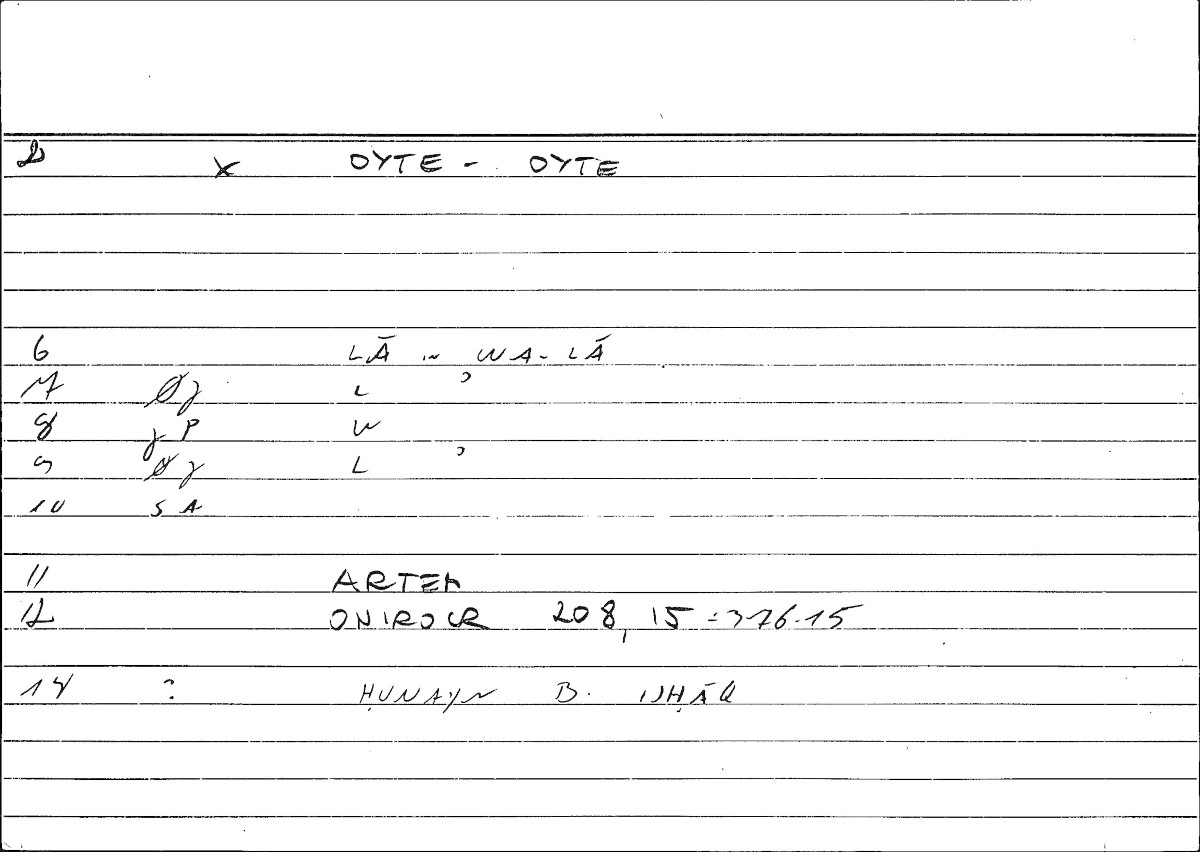 2 x OYTE - OYTE
6 LĀ .. WA-LĀ
7 Øg L ʾ
8 gP W
9 Øg L ʾ
10 SA
11 ARTEM
12 ONIROCR 208, 15 = 376.15
14 ? ḤUNAYN B. ISḤĀQ